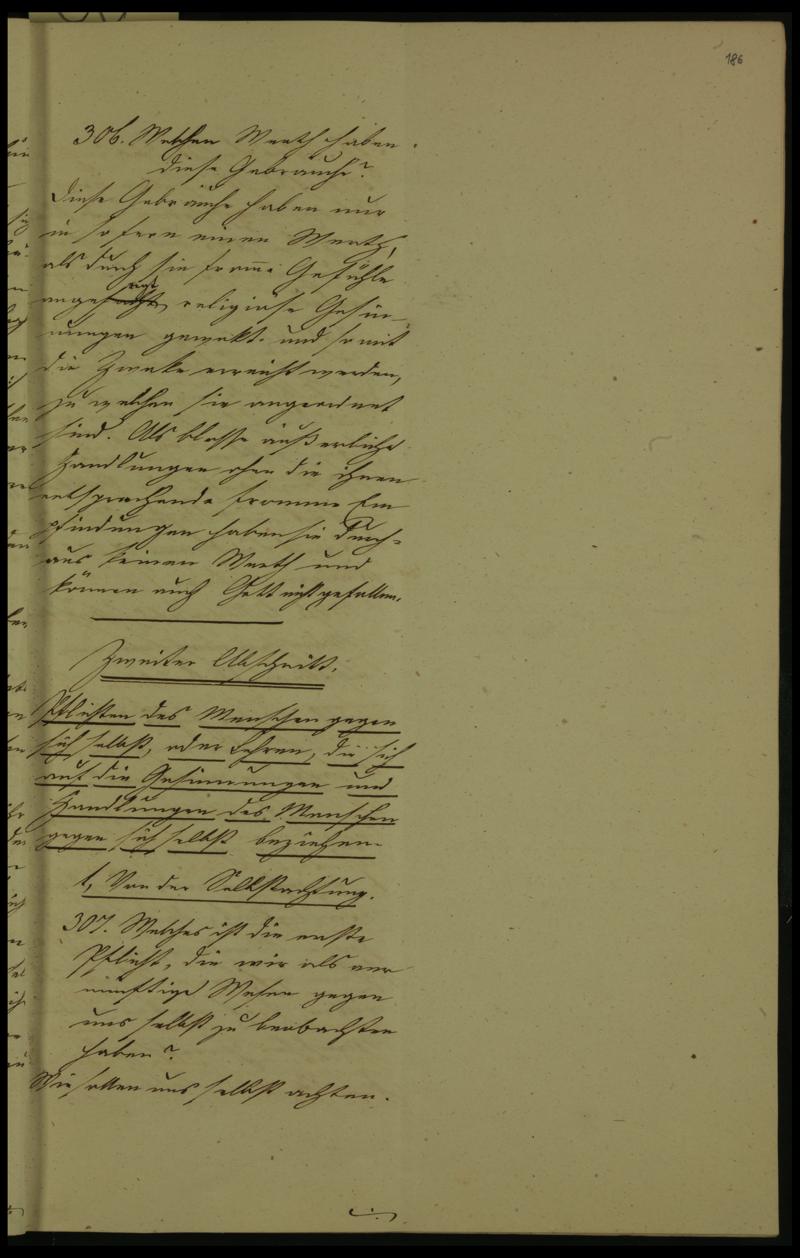 186
306. Welchen Werth haben
diese Gebräuche?
Diese Gebräuche haben nur
in so fern einen Werth,
als durch sie from̄e Gefühle
angeregt, religiöse Gesin-
nungen gewekt. und somit
die Zweke erreicht werden,
zu welchen sie angeordnet
sind. Als blosse äußerliche
Handlungen ohne die ihnen
entsprechende fromme Em
pfindungen haben sie durch-
aus keinen Werth und
können auch Gott nicht gefallen.
Zweiter Abschnitt.
Pflichten des Menschen gegen
sich selbst, oder Lehren, die sich
auf die Gesinnungen und
Handlungen des Menschen
gegen sich selbst beziehen.
1, Von der Selbstachtung.
307. Welches ist die erste
Pflicht, die wir als ver
nünftige Wesen gegen
uns selbst zu beobachten
haben?
Wir sollen uns selbst achten.